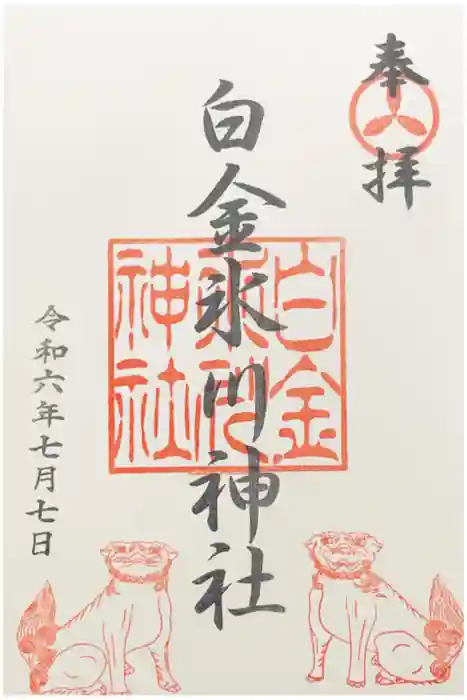 奉拝
白金氷川神社
白金
氷川
神社
令和六年七月七日